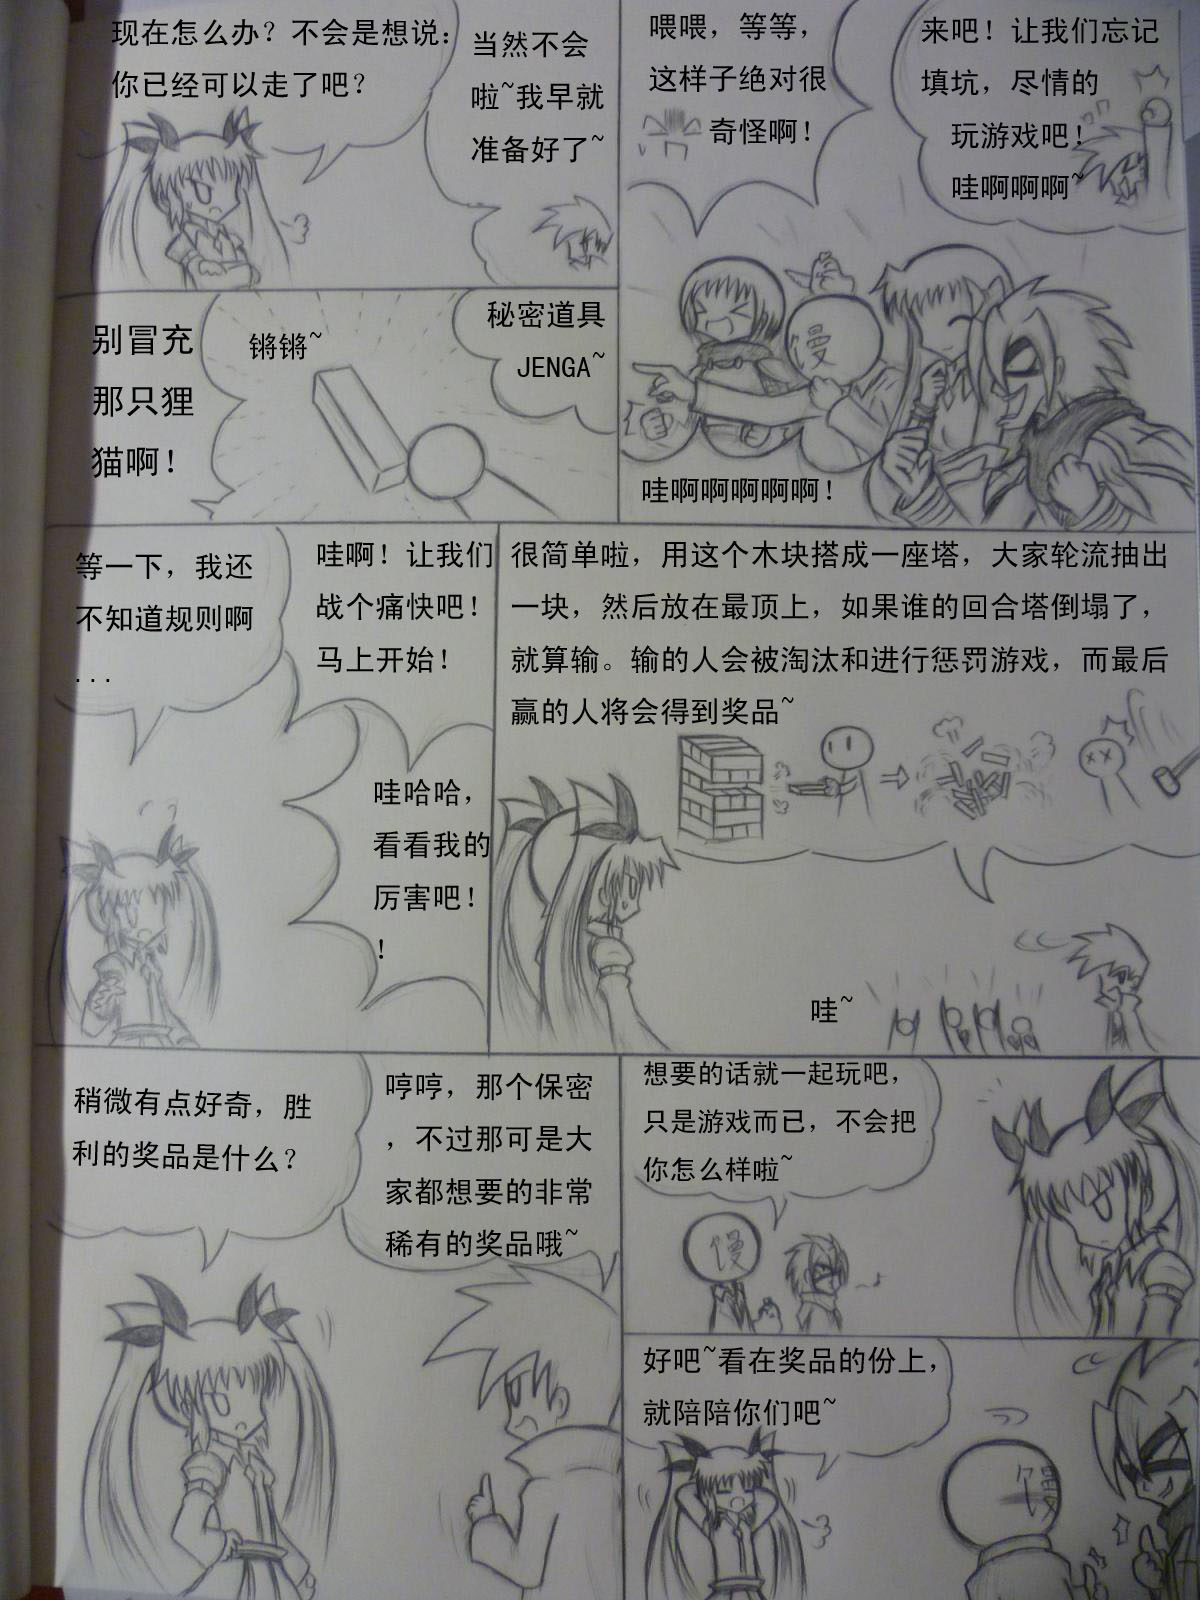 现在怎么办？不会是想说：
你已经可以走了吧？
当然不会
啦~我早就
准备好了~
喂喂，等等，
这样子绝对很
奇怪啊！
来吧！让我们忘记
填坑，尽情的
玩游戏吧！
哇啊啊啊~
馒
哇啊啊啊啊啊！
别冒充
那只狸
猫啊！
锵锵~
秘密道具
JENGA~
等一下，我还
不知道规则啊
...
哇啊！让我们
战个痛快吧！
马上开始！
哇哈哈，
看看我的
厉害吧！
！
很简单啦，用这个木块搭成一座塔，大家轮流抽出
一块，然后放在最顶上，如果谁的回合塔倒塌了，
就算输。输的人会被淘汰和进行惩罚游戏，而最后
赢的人将会得到奖品~
哇~
稍微有点好奇，胜
利的奖品是什么？
哼哼，那个保密
，不过那可是大
家都想要的非常
稀有的奖品哦~
想要的话就一起玩吧，
只是游戏而已，不会把
你怎么样啦~
馒
好吧~看在奖品的份上，
就陪陪你们吧~
馒